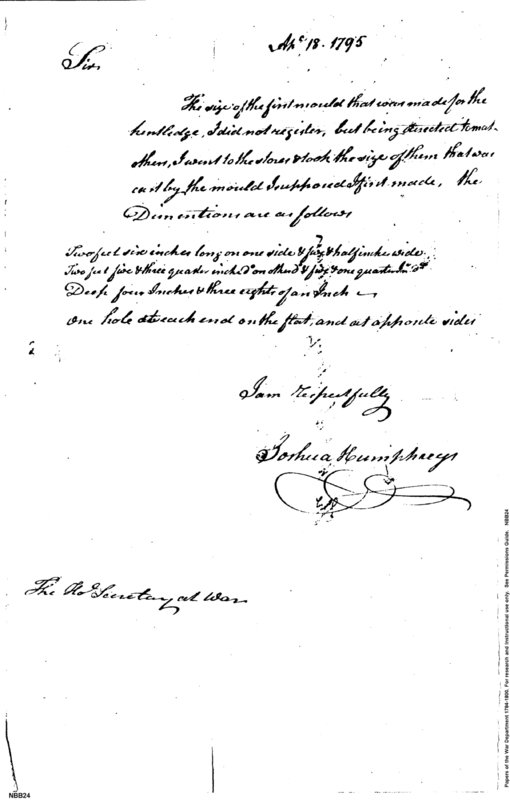 Apl. 18. 1795
Sir
The size of the first mould that was made for the
kentledge, I did not register, but being directed to make
others, I went to the stores & took the size of them that was
cast by the mould I supposed I first made, the
Dimentions are as follows
Two feet six inches long on one side & & half inches wide
Two feet five & three quarter inches Do on other Do & & one quarter In. Do
Deep four Inches & three eights of an Inch
one hole at each end on the flat, and at apposite sides
I am respectfully
Joshua Humphreys
The Hoe Secretary at War
NBB24
Papers of the War Department 1784-1800. For research and instructional use only. See Permissions Guide. NBB24